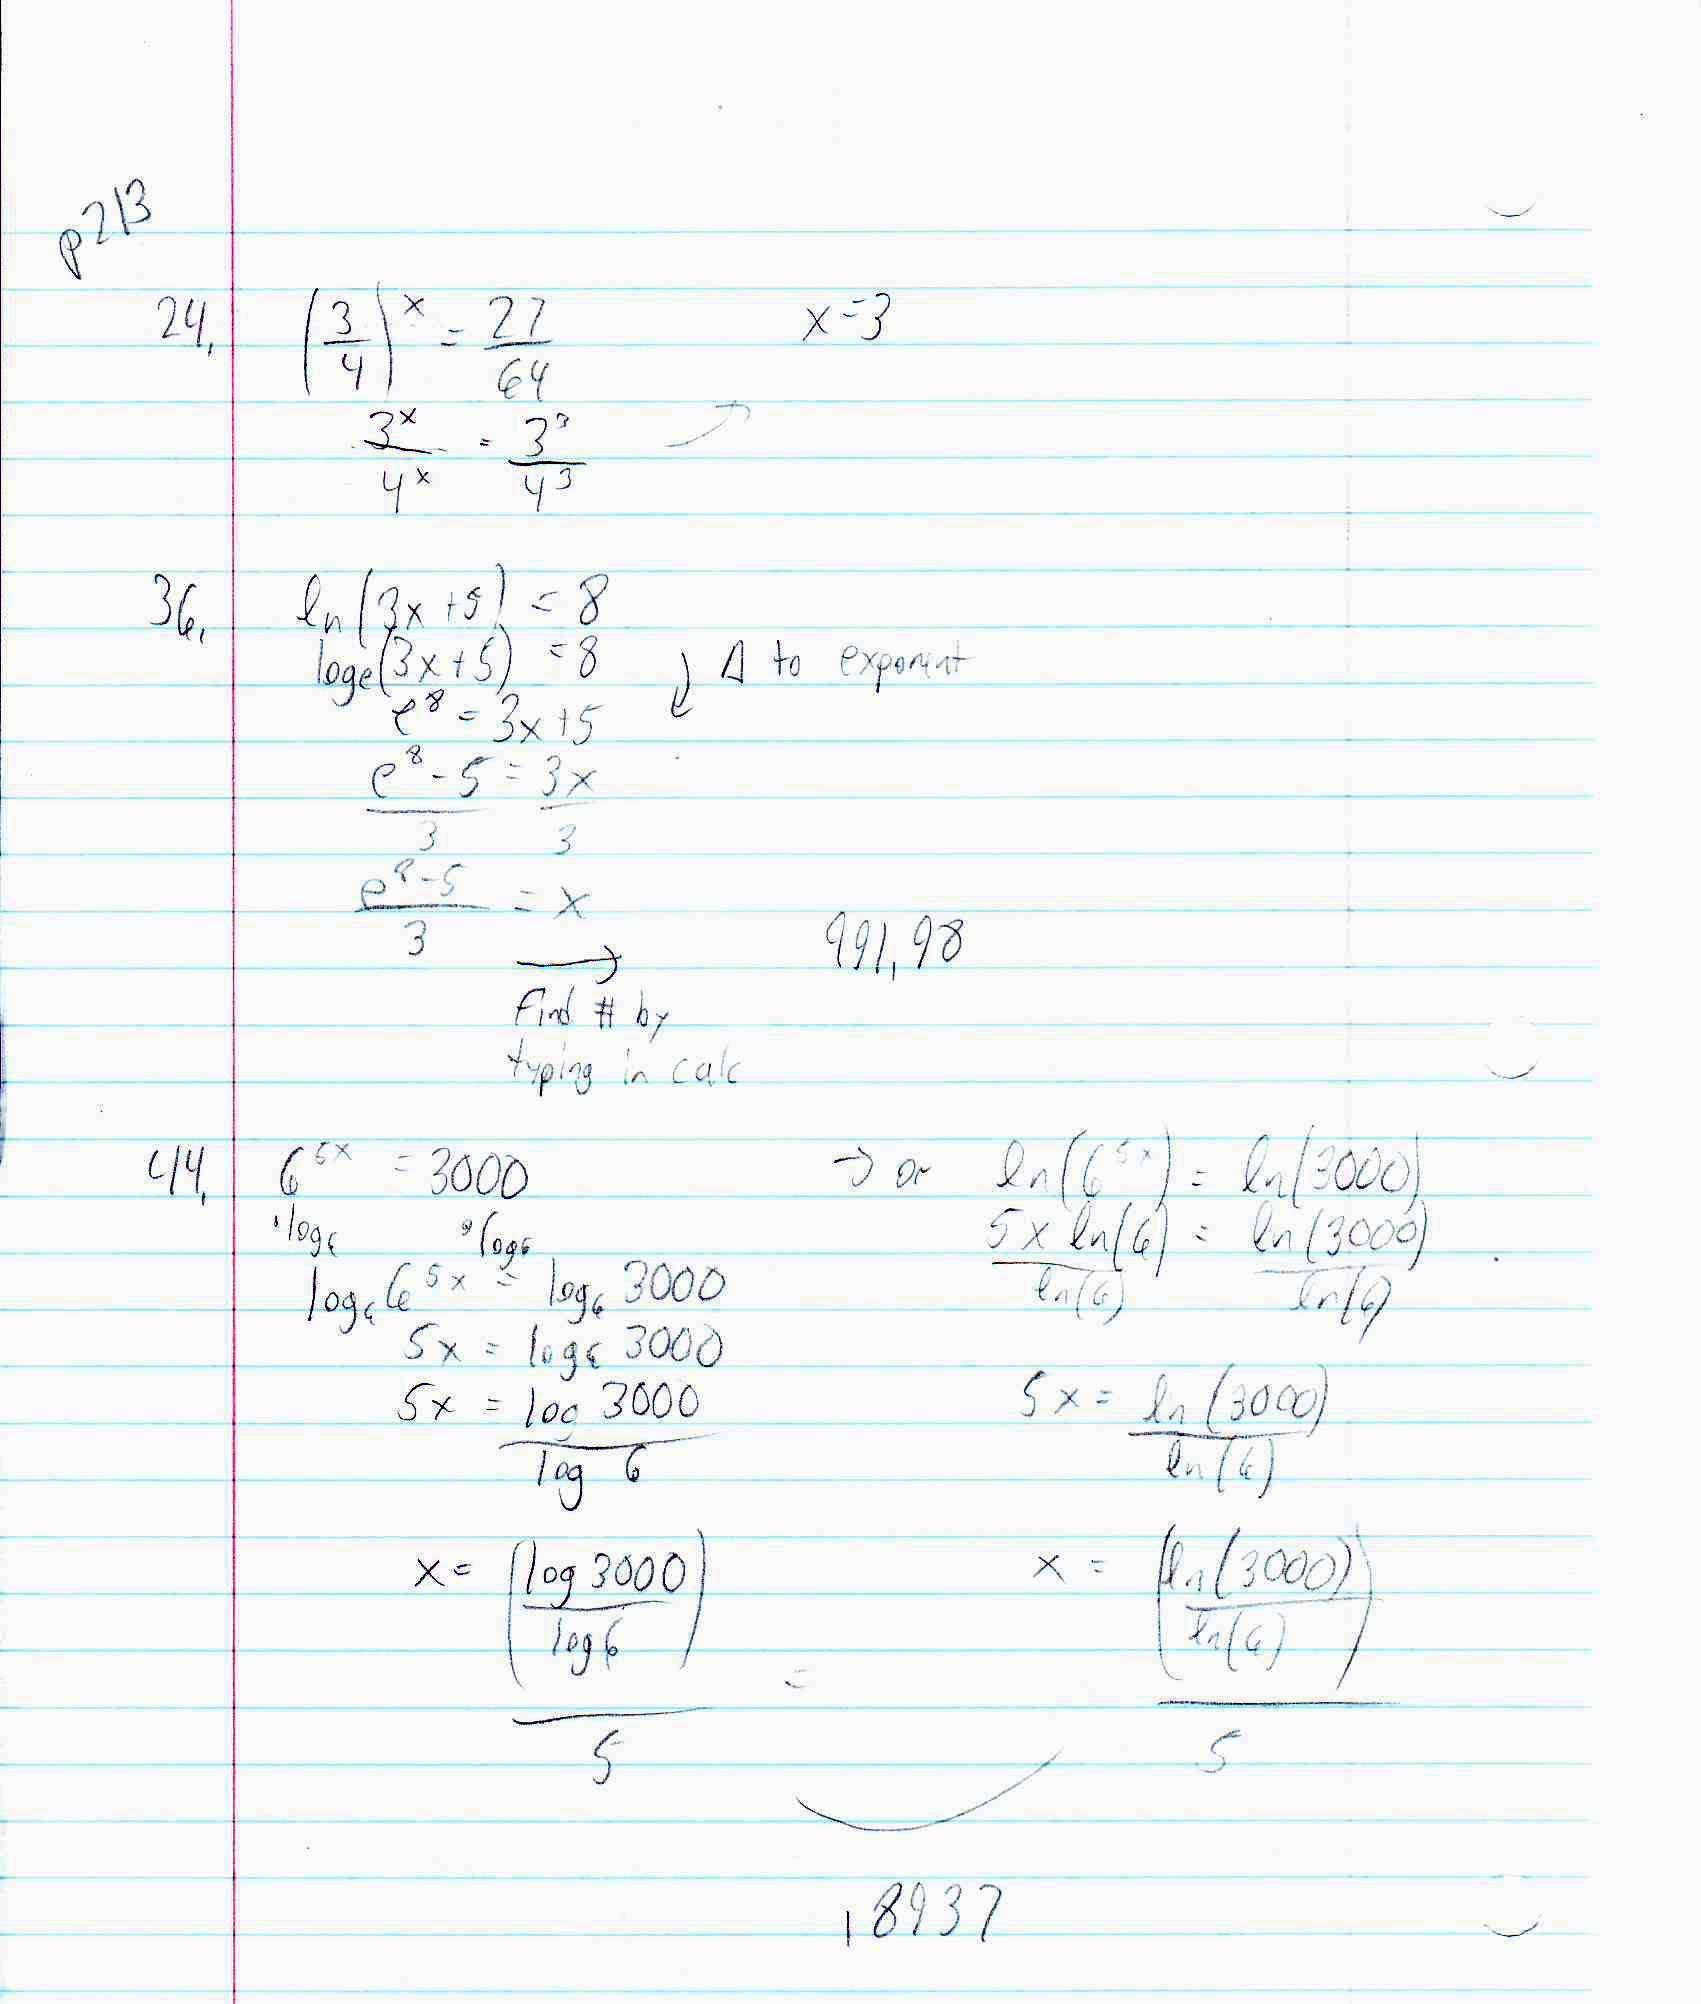 p213
24. (3/4)^x = 27/64 x=3
3^x/4^x = 3^3/4^3
36. ln(3x+5) = 8
loge(3x+5) = 8 Δ to exponent
e^8 = 3x+5
e^8 - 5 = 3x
3 3
e^8-5/3 = x
991.98
Find # by
typing in calc
44. 6^5x = 3000 → or ln(6^5x) = ln(3000)
·log6 ·log6 5x ln(6) = ln(3000)
ln(6) ln(6)
log6 6^5x = log6 3000
5x = log6 3000
5x = log 3000/log 6 5x = ln(3000)/ln(6)
x = (log 3000/log 6)/5 = x = (ln(3000)/ln(6))/5
.8937